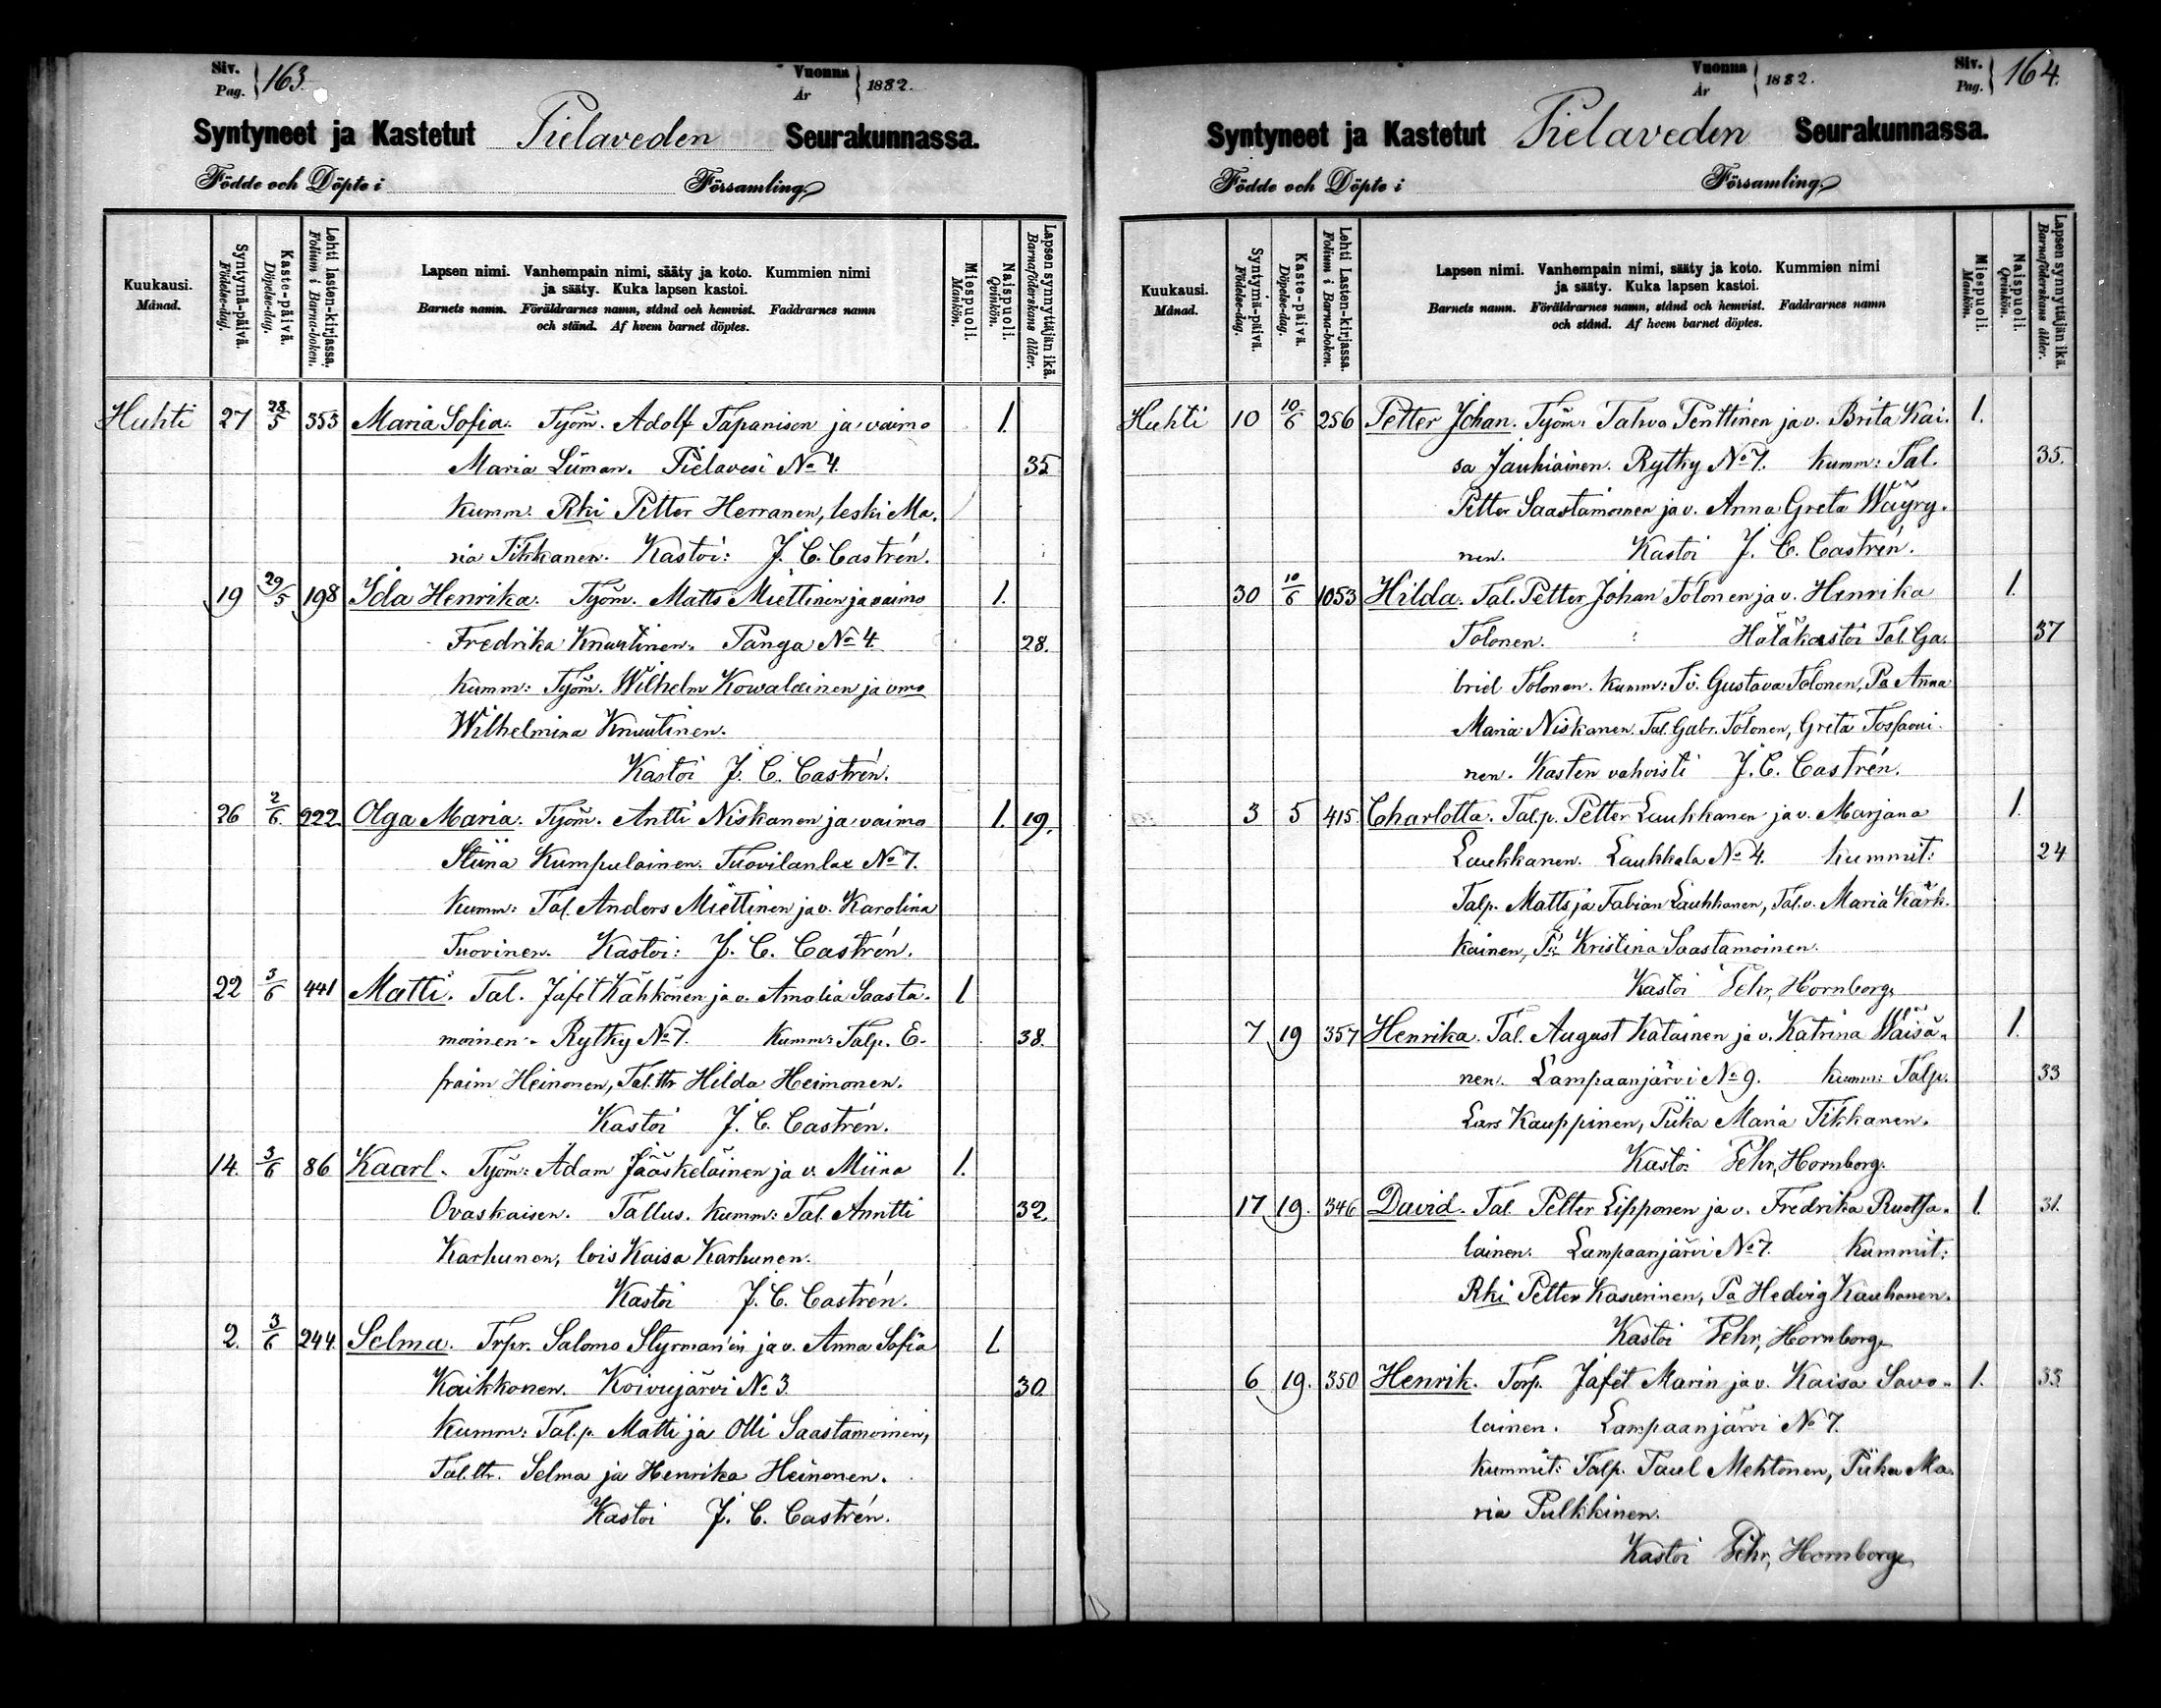 Siv. Pag. 163. Vuonna År 1882.
Syntyneet ja Kastetut Pielaveden Seurakunnassa.
Födde och Döpte i Församling.
Kuukausi. Månad. Syntymä-päivä. Födelse-dag. Kaste-päivä. Döpelse-dag. Lehti lasten-kirjassa. Folium i Barna-boken. Lapsen nimi. Vanhempain nimi, sääty ja koto. Kummien nimi ja sääty. Kuka lapsen kastoi. Barnets namn. Föräldrarnes namn, stånd och hemvist. Faddrarnes namn och stånd. Af hvem barnet döptes. Miespuoli. Mankön. Naispuoli. Qvinkön. Lapsen synnyttäjän ikä. Barnaföderskans ålder.
Huhti 27 28/5 353 Maria Sofia. Työm. Adolf Tapanisen ja vaimo 1.
Maria Liman. Pielavesi No 4. 35
Kumm. Rki Petter Herranen, leski Ma-
ria Tikkanen. Kastoi: J. C. Castrén.
19 29/5 198 Ida Henrika. Työm. Matts Miettinen ja vaimo 1.
Fredrika Knuutinen. Panga No 4. 28.
Kumm: Työm. Wilhelm Kowalainen ja vmo
Wilhelmina Knuutinen.
Kastoi J. C. Castrén.
26 2/6. 222. Olga Maria. Työm. Antti Niskanen ja vaimo 1. 19.
Stiina Kumpulainen. Tuovilanlax No 7.
Kumm: Tal. Anders Miettinen ja v. Karolina
Tuovinen. Kastoi: J. C. Castrén.
22 3/6 441 Matti. Tal. Jafet Kähkönen ja v. Amalia Saasta- 1
moinen. Rytky No 7. Kumm: Talp. E- 38.
fraim Heinonen, Tal.ttr Hilda Heimonen.
Kastoi J. C. Castrén.
14. 3/6 86 Kaarl. Työm: Adam Jääskeläinen ja v. Miina 1.
Ovaskaisen. Tallus. Kumm: Tal. Anntti 32.
Karhunen, lois Kaisa Karhunen.
Kastoi J. C. Castrén.
2. 3/6 244. Selma. Trpr. Salomo Styrman'in ja v. Anna Sofia 1
Kaikkonen. Koivujärvi No 3. 30
Kumm: Tal.p. Matti ja Olli Saastamoinen,
Tal.ttr. Selma ja Henrika Heinonen.
Kastoi J. C. Castrén.
Vuonna År 1882. Siv. Pag. 164.
Syntyneet ja Kastetut Pielaveden Seurakunnassa.
Födde och Döpte i Församling.
Kuukausi. Månad. Syntymä-päivä. Födelse-dag. Kaste-päivä. Döpelse-dag. Lehti Lasten-kirjassa. Folium i Barna-boken. Lapsen nimi. Vanhempain nimi, sääty ja koto. Kummien nimi ja sääty. Kuka lapsen kastoi. Barnets namn. Föräldrarnes namn, stånd och hemvist. Faddrarnes namn och stånd. Af hvem barnet döptes. Miespuoli. Mankön. Naispuoli. Qvinkön. Lapsen synnyttäjän ikä. Barnaföderskans ålder.
Huhti 10 10/6 256 Petter Johan. Työm: Tahvo Penttinen ja v. Brita Kai- 1.
sa Jauhiainen. Rytky No 7. Kumm: Tal. 35.
Petter Saastamoinen ja v. Anna Greta Wäyry-
nen. Kastoi J. C. Castrén.
30 10/6 1053 Hilda. Tal. Petter Johan Tolonen ja v. Henrika 1.
Tolonen. Hätäkastoi Tal. Ga- 37
briel Tolonen. Kumm: Gustava Tolonen, Pa Anna
Maria Niskanen. Tal. Gabr. Tolonen, Greta
nen. Kasten vahvisti J. C. Castrén.
3 5 415 Charlotta. Talp. Petter Laukkanen ja v. Marjana 1.
Laukkanen. Laukkala No 4. Kummit: 24
Talp. Matts ja Fabian Laukkanen, Tal.v. Maria Kärk-
käinen, Kristina Saastamoinen.
Kastoi Fehr, Hornborg.
7 19 357 Henrika. Tal. August Katainen ja v. Katrina Wäisä- 1.
nen. Lampaanjärvi No 9. Kumm: Talp. 33
Lars Kauppinen, Piika Maria Tikkanen.
Kastoi Fehr, Hornborg.
17 19. 346 David. Tal. Petter Lipponen ja v. Fredrika Ruotsa- 1. 31.
lainen. Lampaanjärvi No 7. Kummit:
Rki Petter Kasurinen, Pa Hedvig Kauhanen.
Kastoi Fehr, Hornborg.
6 19. 350 Henrik. Torp. Jafet Marin ja v. Kaisa Savo- 1. 33
lainen. Lampaanjärvi No 7.
Kummit: Talp. Paul Mehtonen, Piika Ma-
ria Pulkkinen.
Kastoi Fehr, Hornborg.